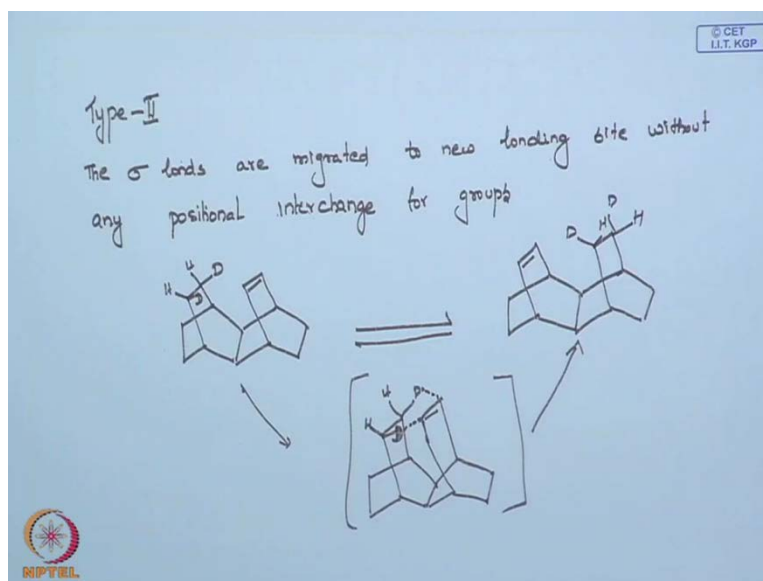 © CET
I.I.T. KGP
Type-II
The σ bonds are migrated to new bonding site without
any positional interchange for groups
D
H
D
H
H
D
D
H
D
H
D
NPTEL